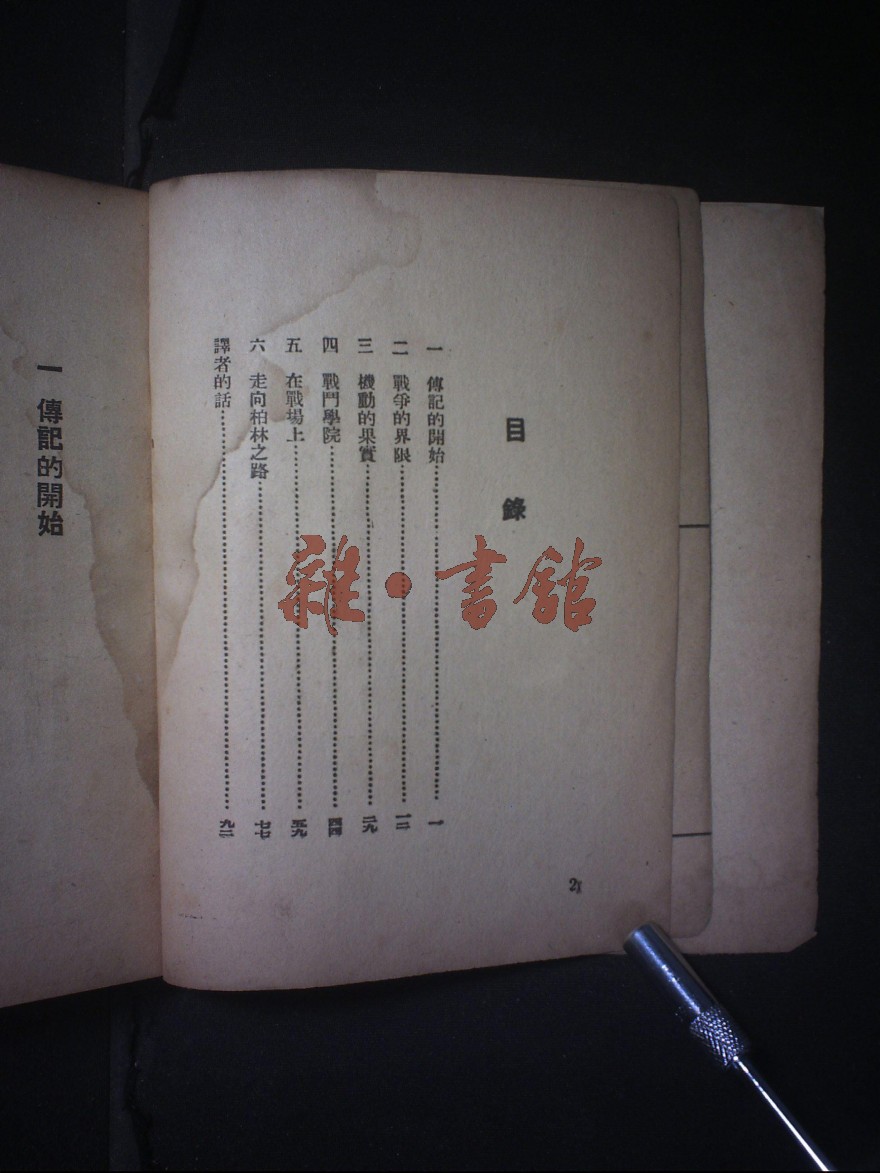 目錄
一 傳記的開始 一
二 戰爭的界限 一二
三 機動的果實 二九
四 戰鬥學院 四四
五 在戰場上 五九
六 走向柏林之路 七七
譯者的話 九二
雜·書館
一 傳記的開始